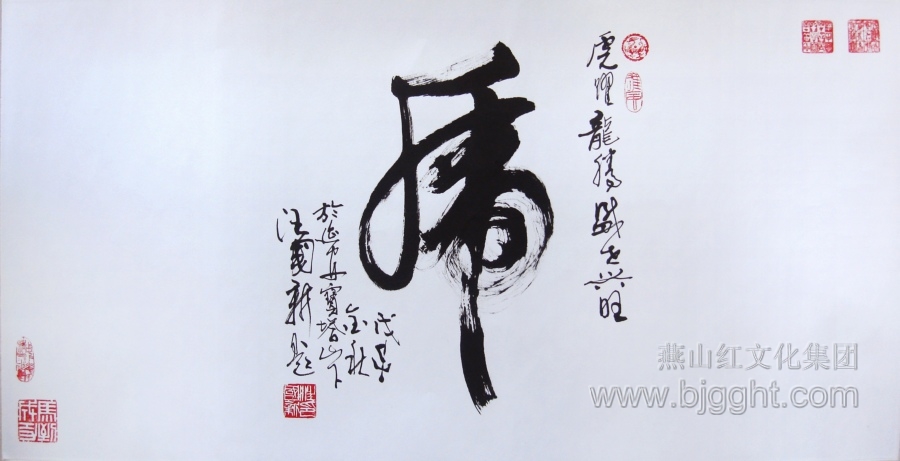 虎躍龍騰盛世興旺
虎
戊子
金秋
寶塔山下
汪國新題
馬到成功
燕山红文化集团
www.bjgght.com